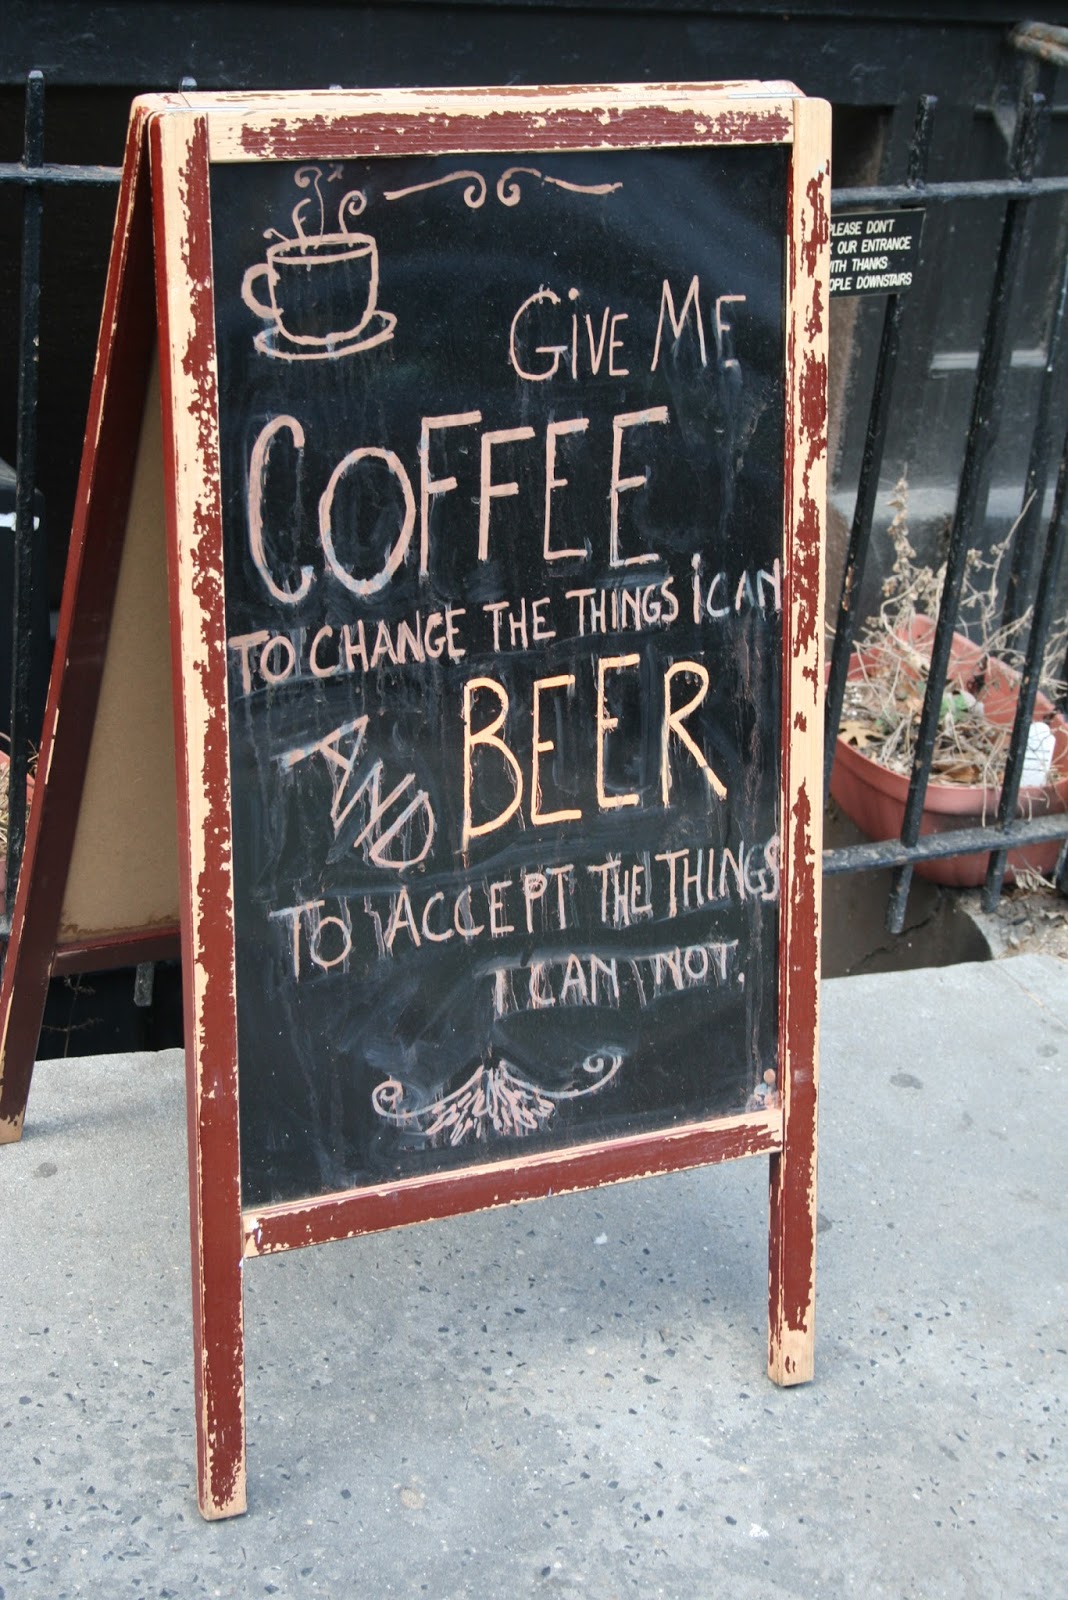 GiVE ME
COFFEE
TO CHANGE THE THINGS i CAN
AND BEER
TO ACCEPT THE THINGS
I CAN NOT.
PLEASE DON'T
OUR ENTRANCE
WITH THANKS
DOWNSTAIRS